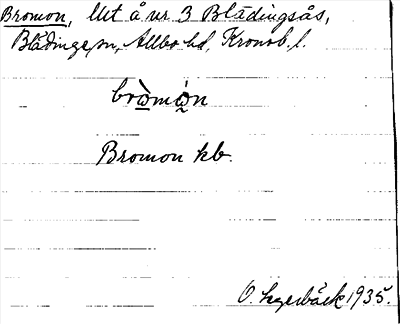 Bromon, Utt å nr 3 Blädingsås,
Blädinge sn, Allbo hd, Kronob. l.
bròmǻn
Bromon kb.
O. Lagerbäck 1935.